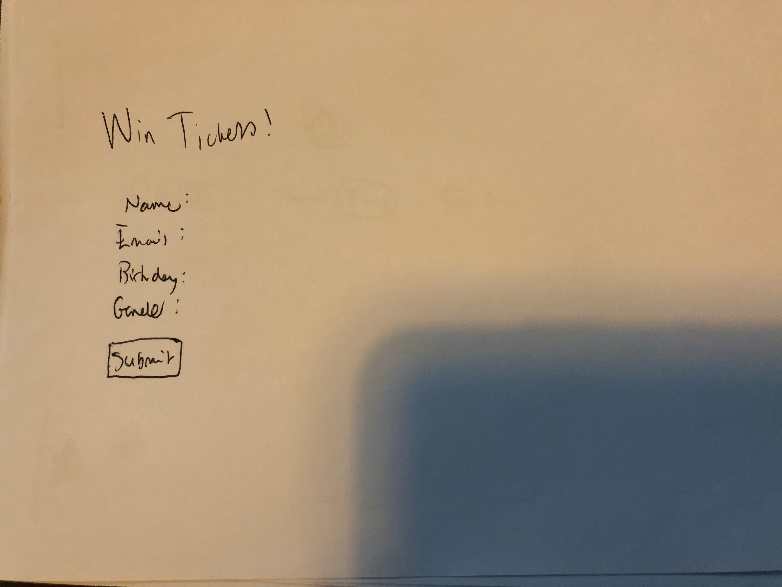 Win Tickets!
Name:
Email:
Birthday:
Gender:
Submit